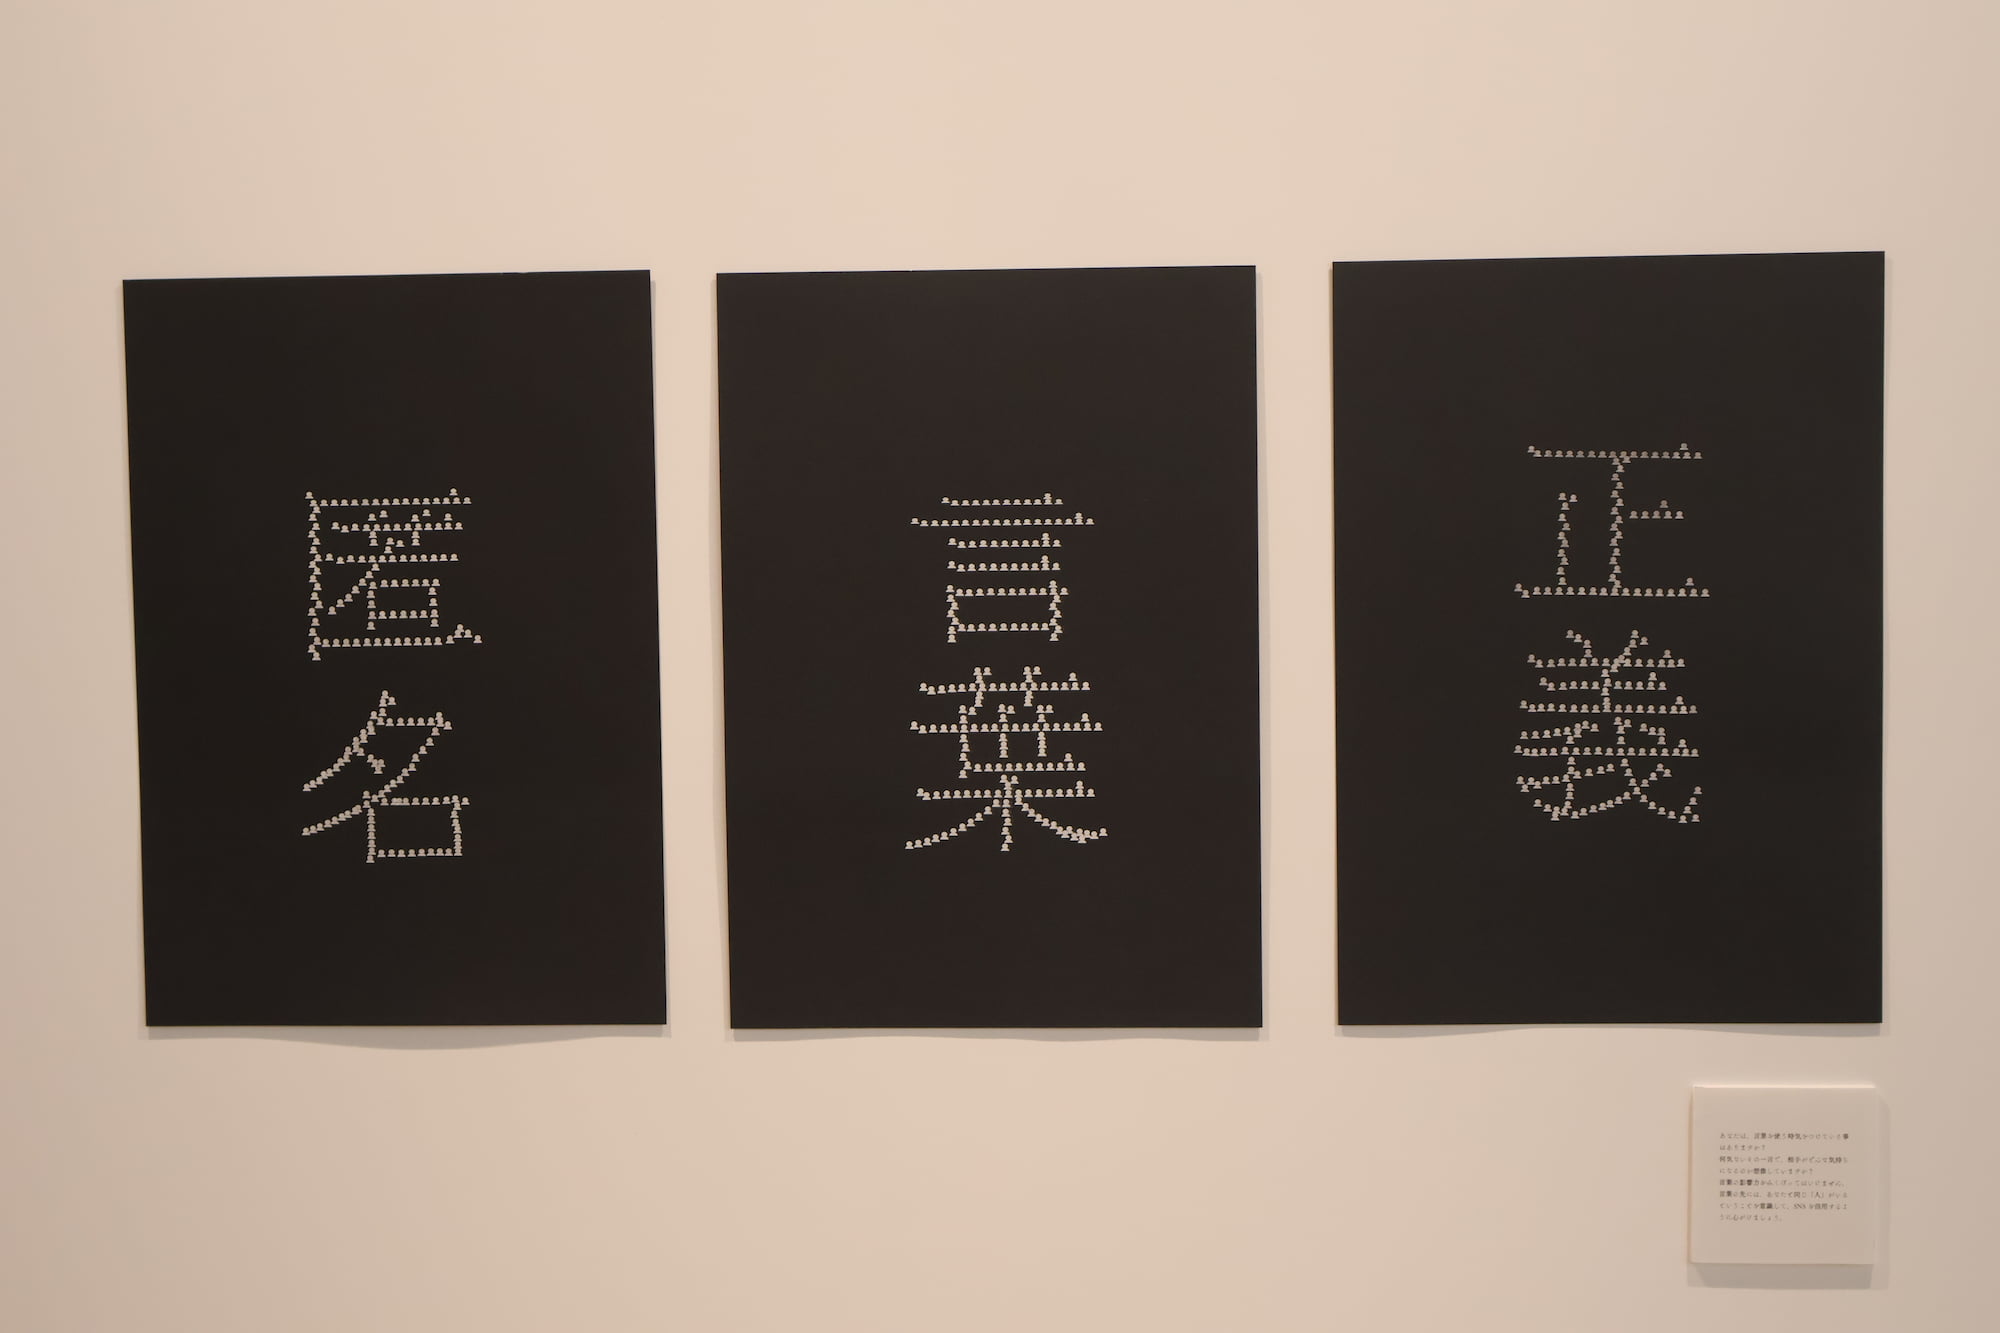 匿名
言葉
正義
あなたは、言葉を使う時気をつけている事
はありますか？
何気ないその一言で、相手がどんな気持ち
になるのか想像していますか？
言葉の影響力をみくびってはいけません。
言葉の先には、あなたと同じ「人」がいる
ということを意識して、SNS を活用するよ
うに心がけましょう。